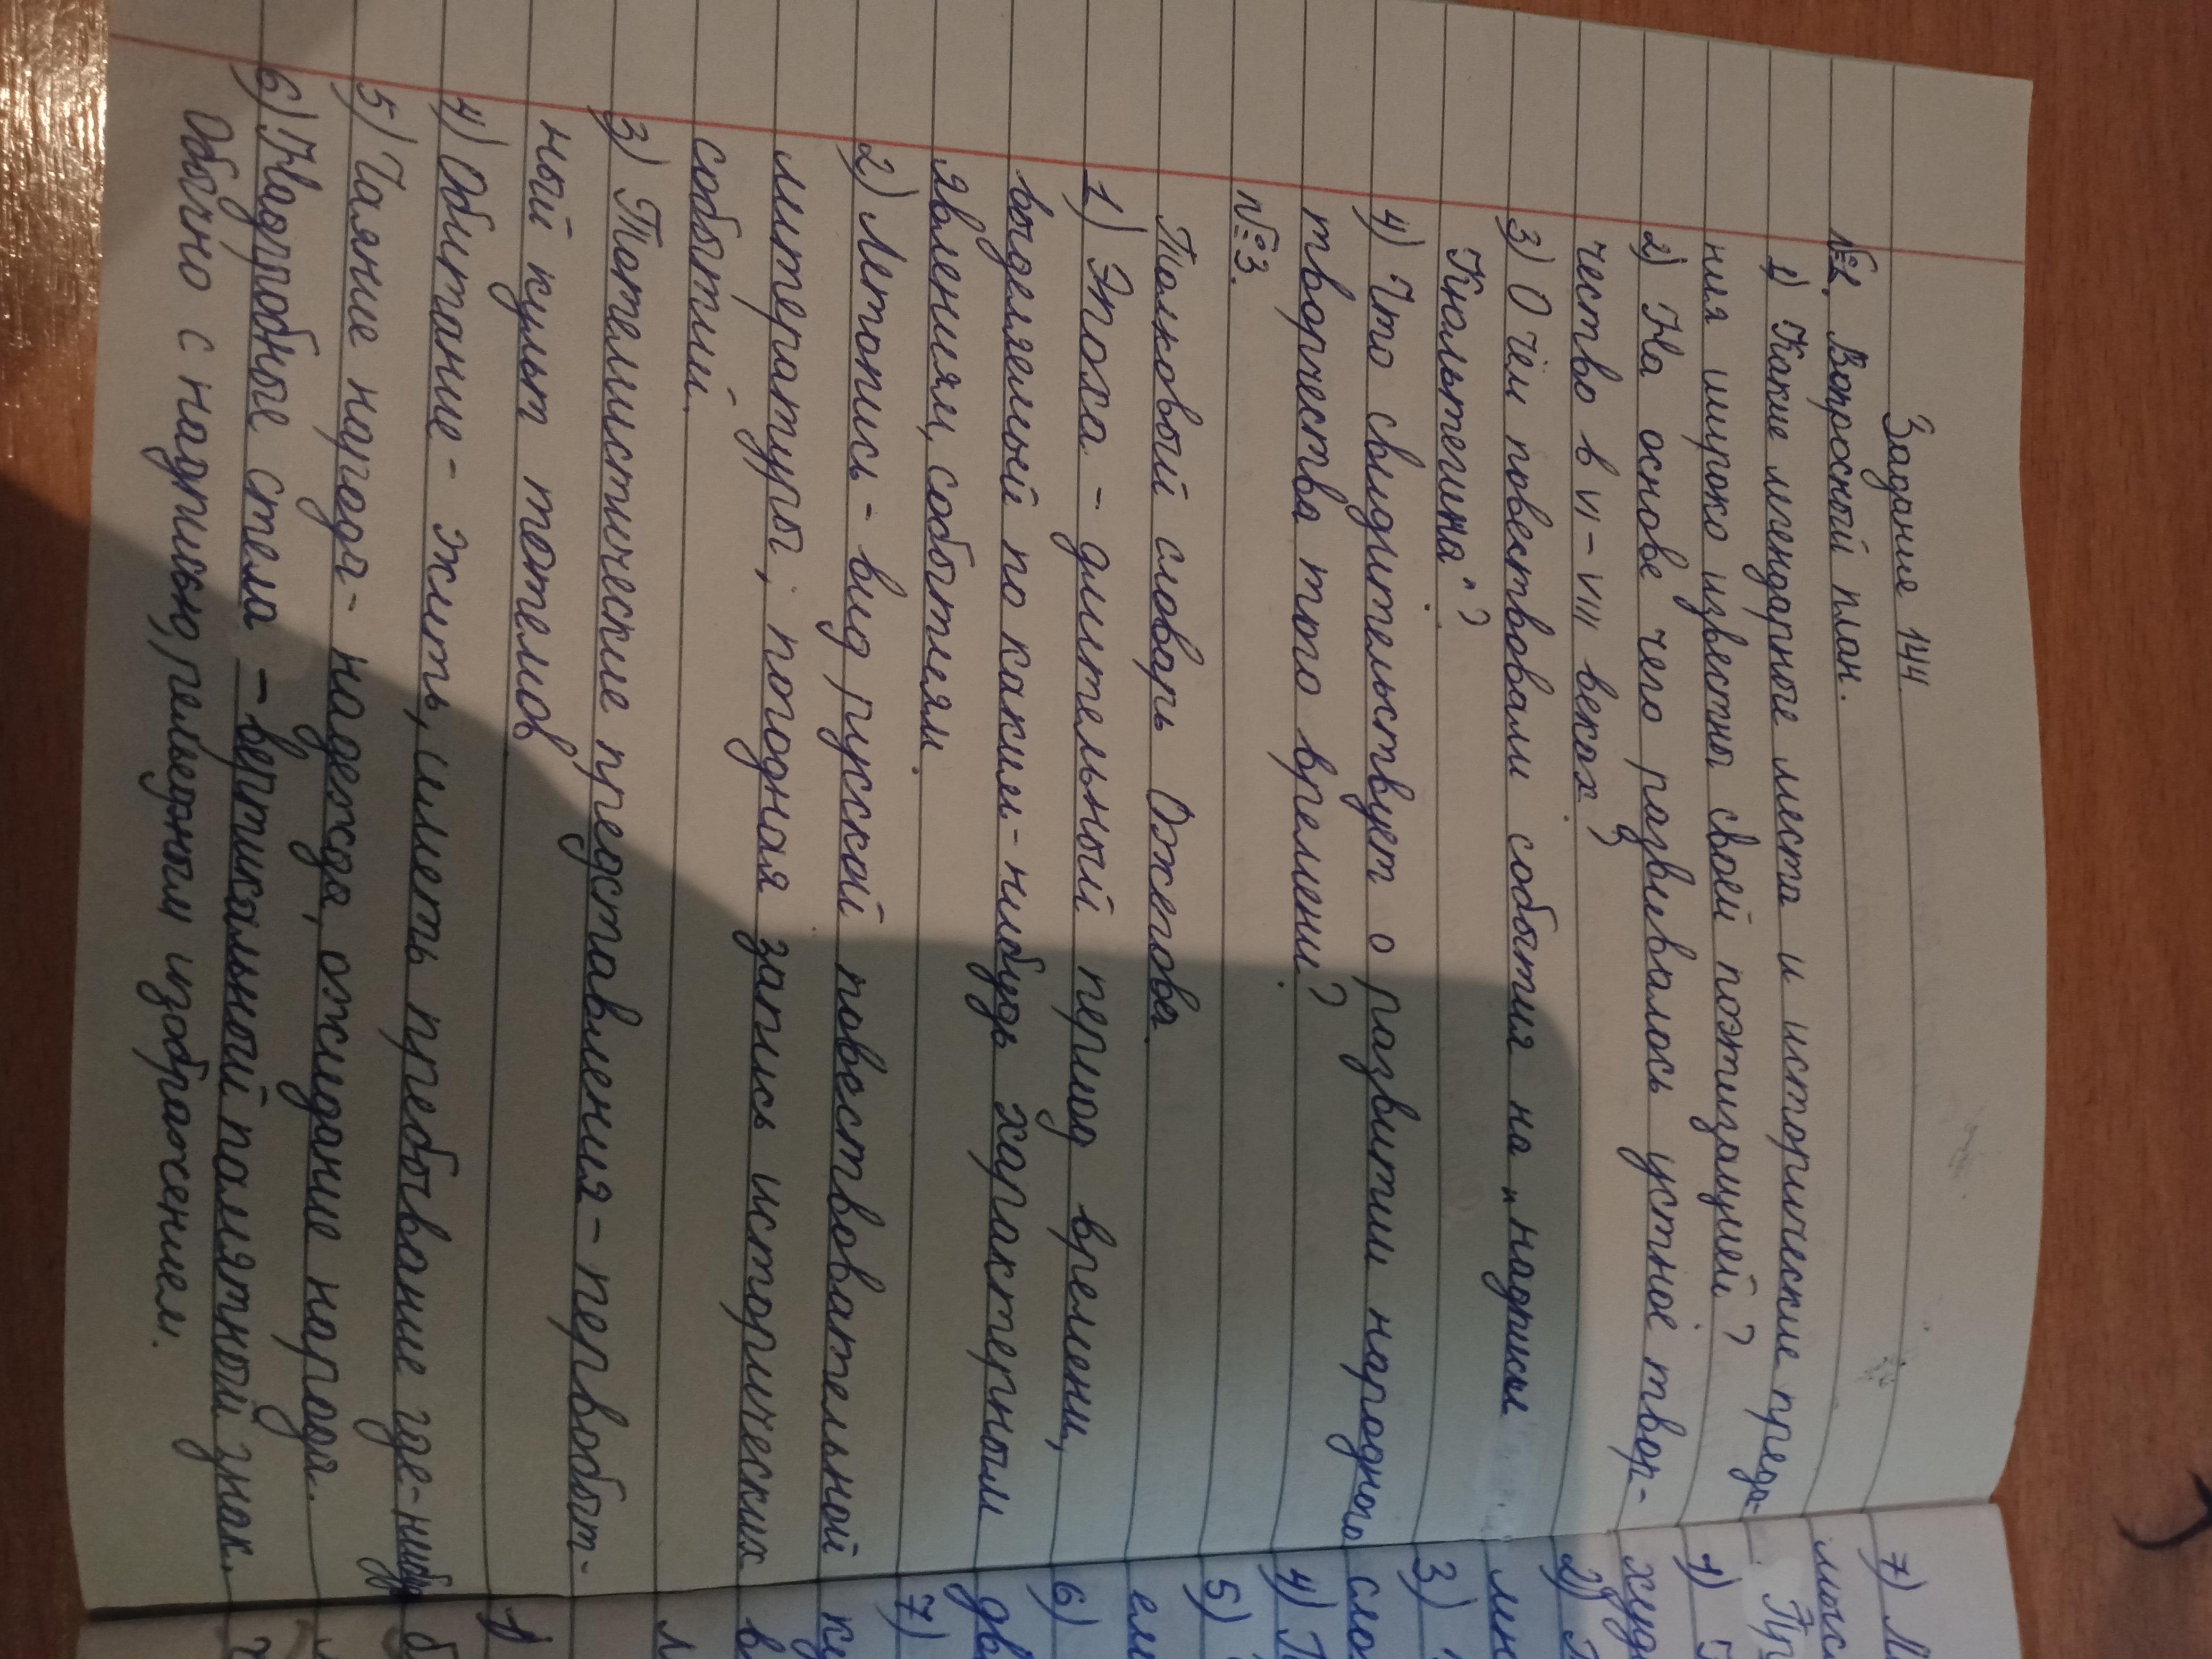 Задание 144
№2. Вопросный план.
1) Какие легендарные места и исторические преда-
ния широко известны своей поэтизацией?
2) На основе чего развивалось устное твор-
чество в VI-VIII веках?
3) О чём повествовали события на „надписи
Кюльтегина"?
4) Что свидетельствует о развитии народного
творчества того времени?
№3.
Толковый словарь Ожегова.
1) Эпоха - длительный период времени,
выделяемый по каким-нибудь характерным
явлениям, событиям.
2) Летопись - вид русской повествовательной
литературы; погодная запись исторических
событий.
3) Тотемистические представления - первобыт-
ный культ тотемов
4) Обитание - жить, иметь пребывание где-нибудь
5) Чаяние народа - надежда, ожидание народа.
6) Надгробные стела - вертикальный памятный знак.
Обычно с надписью, рельефным изображением.
7)
1)
2)
3)
4)
5)
6)
7)
1)